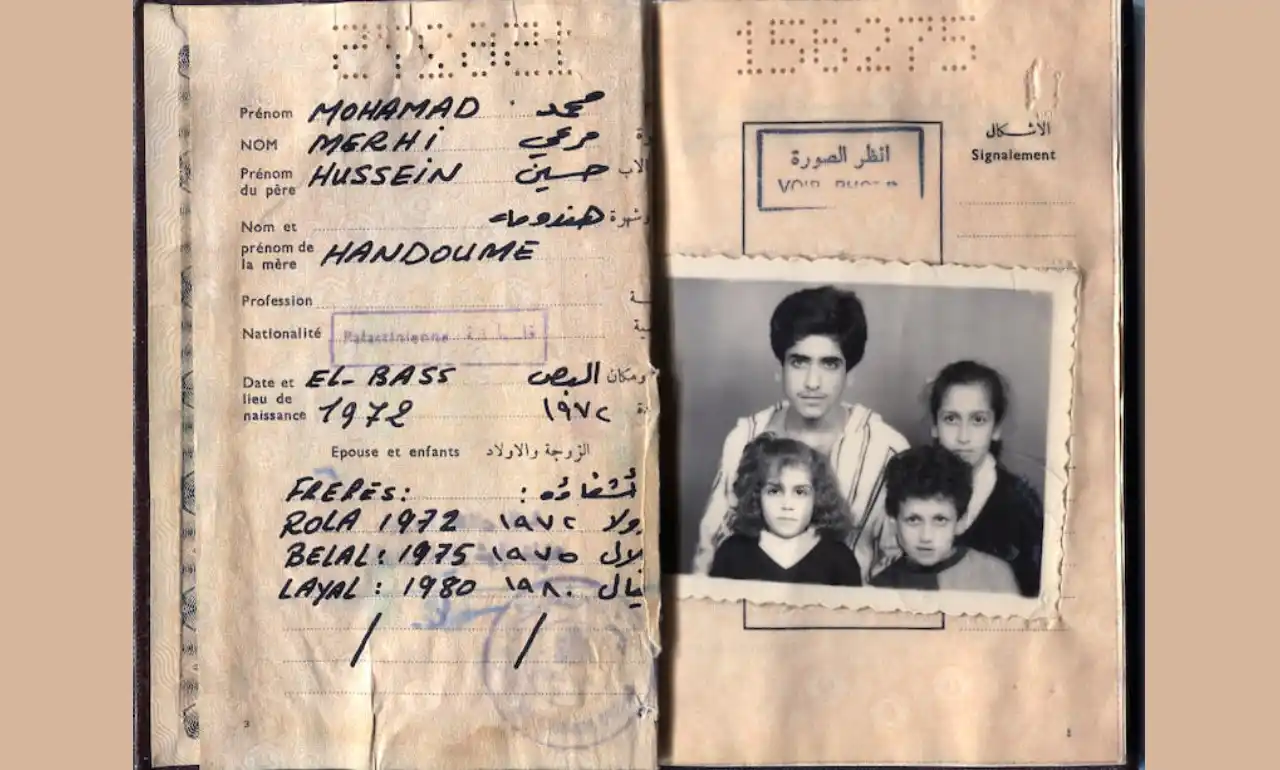 156275
Prénom MOHAMAD محمد
NOM MERHI مرعي
Prénom du père HUSSEIN حسين الاب
Nom et هندومه
prénom de
la mère HANDOUME
Profession
Nationalité Palestinienne
Date et EL-BASS البص ومكان
lieu de
naissance 1972 ١٩٧٢
Epouse et enfants الزوجة والاولاد
FRERES: أشقاؤه :
ROLA 1972 ١٩٧٢ ولا
BELAL: 1975 ١٩٧٥ لال
LAYAL: 1980 ١٩٨٠ يال
/ /
3
156275
انظر الصورة
VOIR PHOTO
الأشكال
Signalement